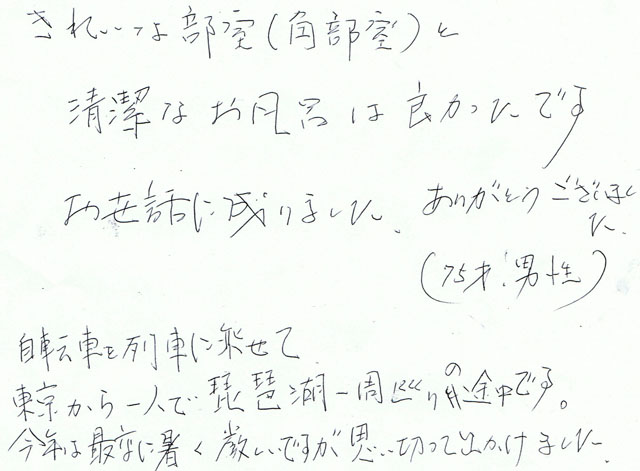 きれいな部室(角部室)と
清潔なお風呂は良かったです
お世話に成りました、ありがとうございまし
た、
(75才、男性)
自転車を列車に乗せて
東京から一人で琵琶湖一周巡りの途中です。
今年は最高に暑く厳しいですが思い切って出かけました、